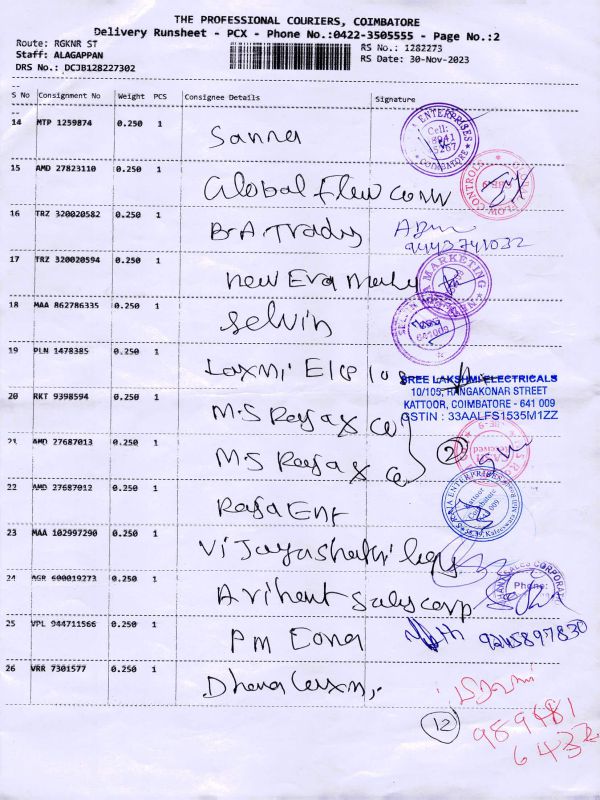 THE PROFESSIONAL COURIERS, COIMBATORE
Delivery Runsheet - PCX - Phone No.:0422-3505555 - Page No.:2
Route: RGKNR ST
RS No.: 1282273
Staff: ALAGAPPAN
RS Date: 30-Nov-2023
DRS No.: DCJB128227302
S No Consignment No Weight PCS Consignee Details Signature
14 MTP 1259874 0.250 1
ENTERPRISES
Cell:
COIMBATORE
15 AMD 27823110 0.250 1 Global Flow
CONTROLS
16 TRZ 320020582 0.250 1 B.A. Tradys
9443741032
17 TRZ 320020594 0.250 1 New Era
MARKETING
18 MAA 862786335 0.250 1 Selvin
19 PLN 1478385 0.250 1 Laxmi
SREE LAKSHMI ELECTRICALS
10/105, RANGAKONAR STREET
KATTOOR, COIMBATORE - 641 009
GSTIN : 33AALFS1535M1ZZ
20 RKT 9398594 0.250 1 M.S Raja & co
2
21 AMD 27687013 0.250 1 M.S Raja & co
22 AMD 27687012 0.250 1 Raja Ent
RAJA ENTERPRISES
Kattoor
Coimbatore
23 MAA 102997290 0.250 1
24 AGR 600019273 0.250 1 Arihant Salescorp
SALES CORPORATION
Phone:
25 VPL 944711566 0.250 1 PM
9245897830
26 VRR 7301577 0.250 1 Dhanalaxmi
12
989481
6432